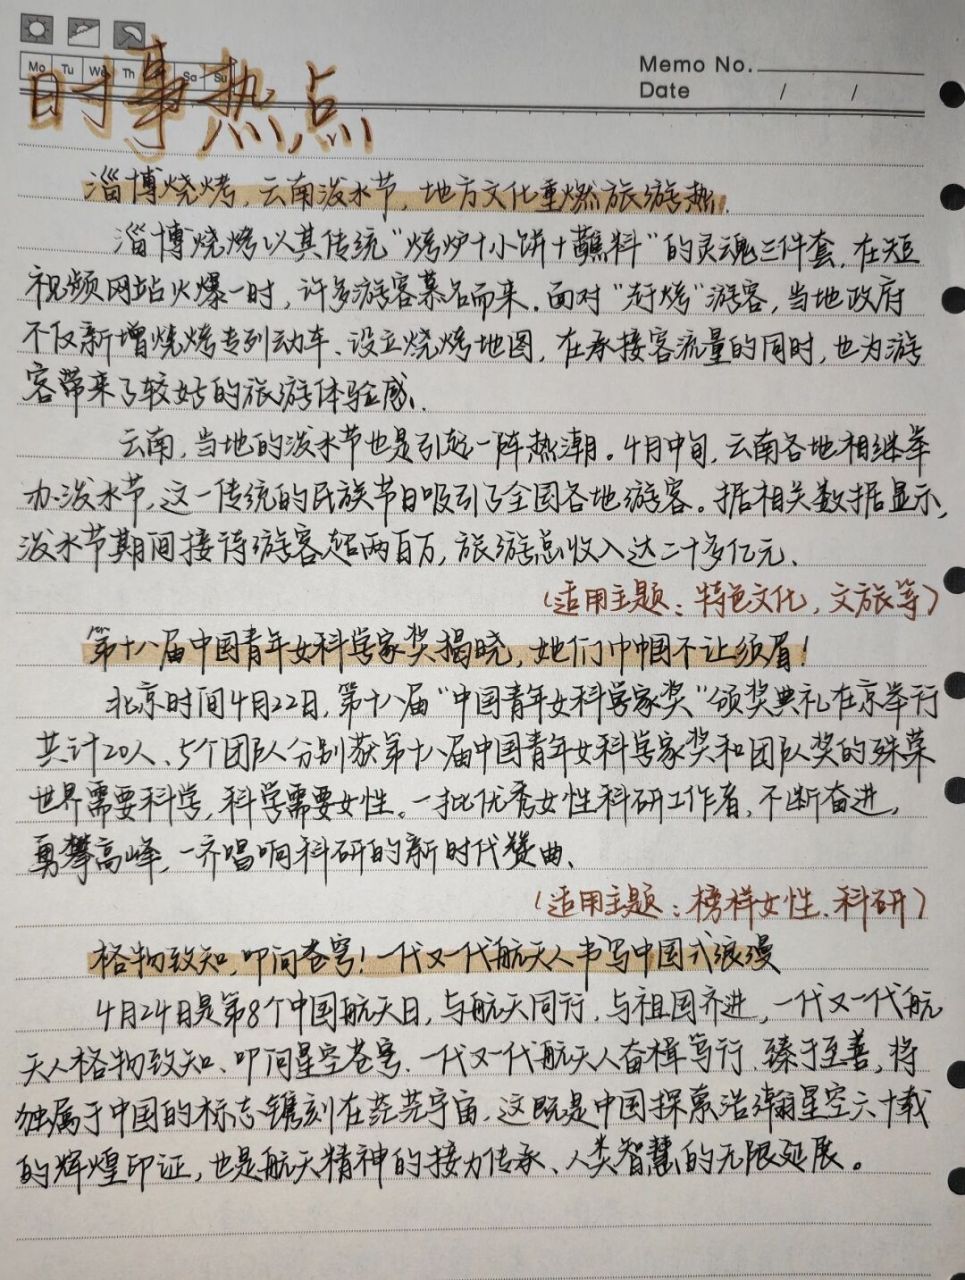 Memo No.
Mo Tu We Th Sa Su
Date / /
时事热点
淄博烧烤，云南泼水节，地方文化重燃旅游热.
淄博烧烤以其传统“烤炉+小饼+蘸料”的灵魂三件套，在短
视频网站火爆一时，许多游客慕名而来.面对“赶烤”游客，当地政府
不仅新增烧烤专列动车、设立烧烤地图，在承接客流量的同时，也为游
客带来了较好的旅游体验感.
云南，当地的泼水节也是引起一阵热潮。4月中旬，云南各地相继举
办泼水节，这一传统的民族节日吸引了全国各地游客。据相关数据显示，
泼水节期间接待游客超两百万，旅游总收入达二十多亿元、
（适用主题：特色文化，文旅等）
第十八届中国青年女科学家奖揭晓，她们巾帼不让须眉！
北京时间4月22日，第十八届“中国青年女科学家奖”颁奖典礼在京举行
共计20人、5个团队分别获第十八届中国青年女科学家奖和团队奖的殊荣
世界需要科学，科学需要女性。一批优秀女性科研工作者，不断奋进，
勇攀高峰，一齐唱响科研的新时代赞曲、
（适用主题：榜样女性、科研）
格物致知，叩问苍穹！一代又一代航天人书写中国式浪漫
4月24日是第8个中国航天日，与航天同行，与祖国齐进，一代又一代航
天人格物致知、叩问星空苍穹、一代又一代航天人奋楫笃行、臻于至善，将
独属于中国的标志镌刻在茫茫宇宙、这既是中国探索浩瀚星空六十载
的辉煌印证，也是航天精神的接力传承、人类智慧的无限延展。